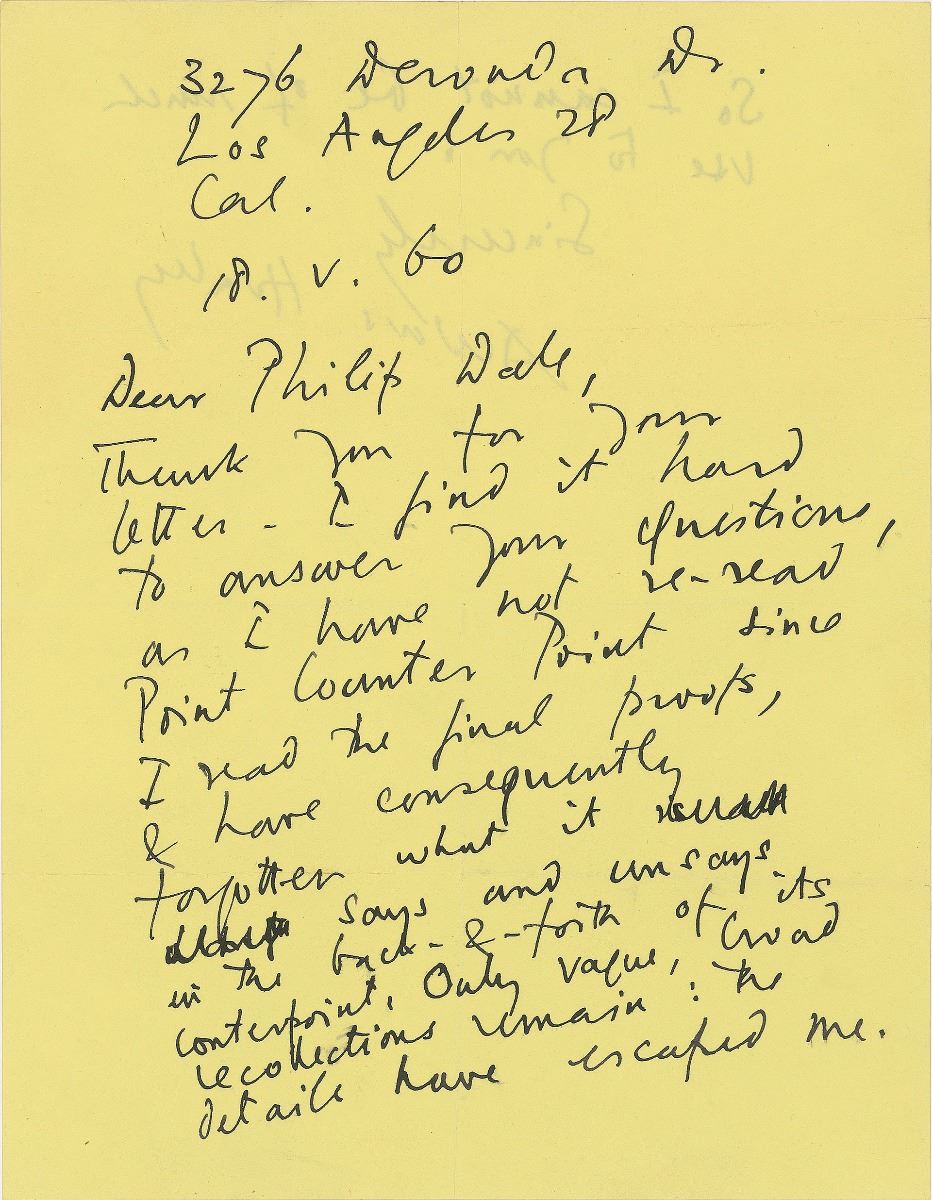 3276 Deronda Dr.
Los Angeles 28
Cal.
18. V. 60
Dear Philip Dale,
Thank you for your
letter - I find it hard
to answer your questions,
as I have not re-read
Point Counter Point since
I read the final proofs,
& have consequently
forgotten what it
says and unsays
in the back-&-forth of its
conterpoint. Only vague, broad
recollections remain: the
details have escaped me.
So I cannot be of much
use to you.
Sincerely
Aldous Huxley